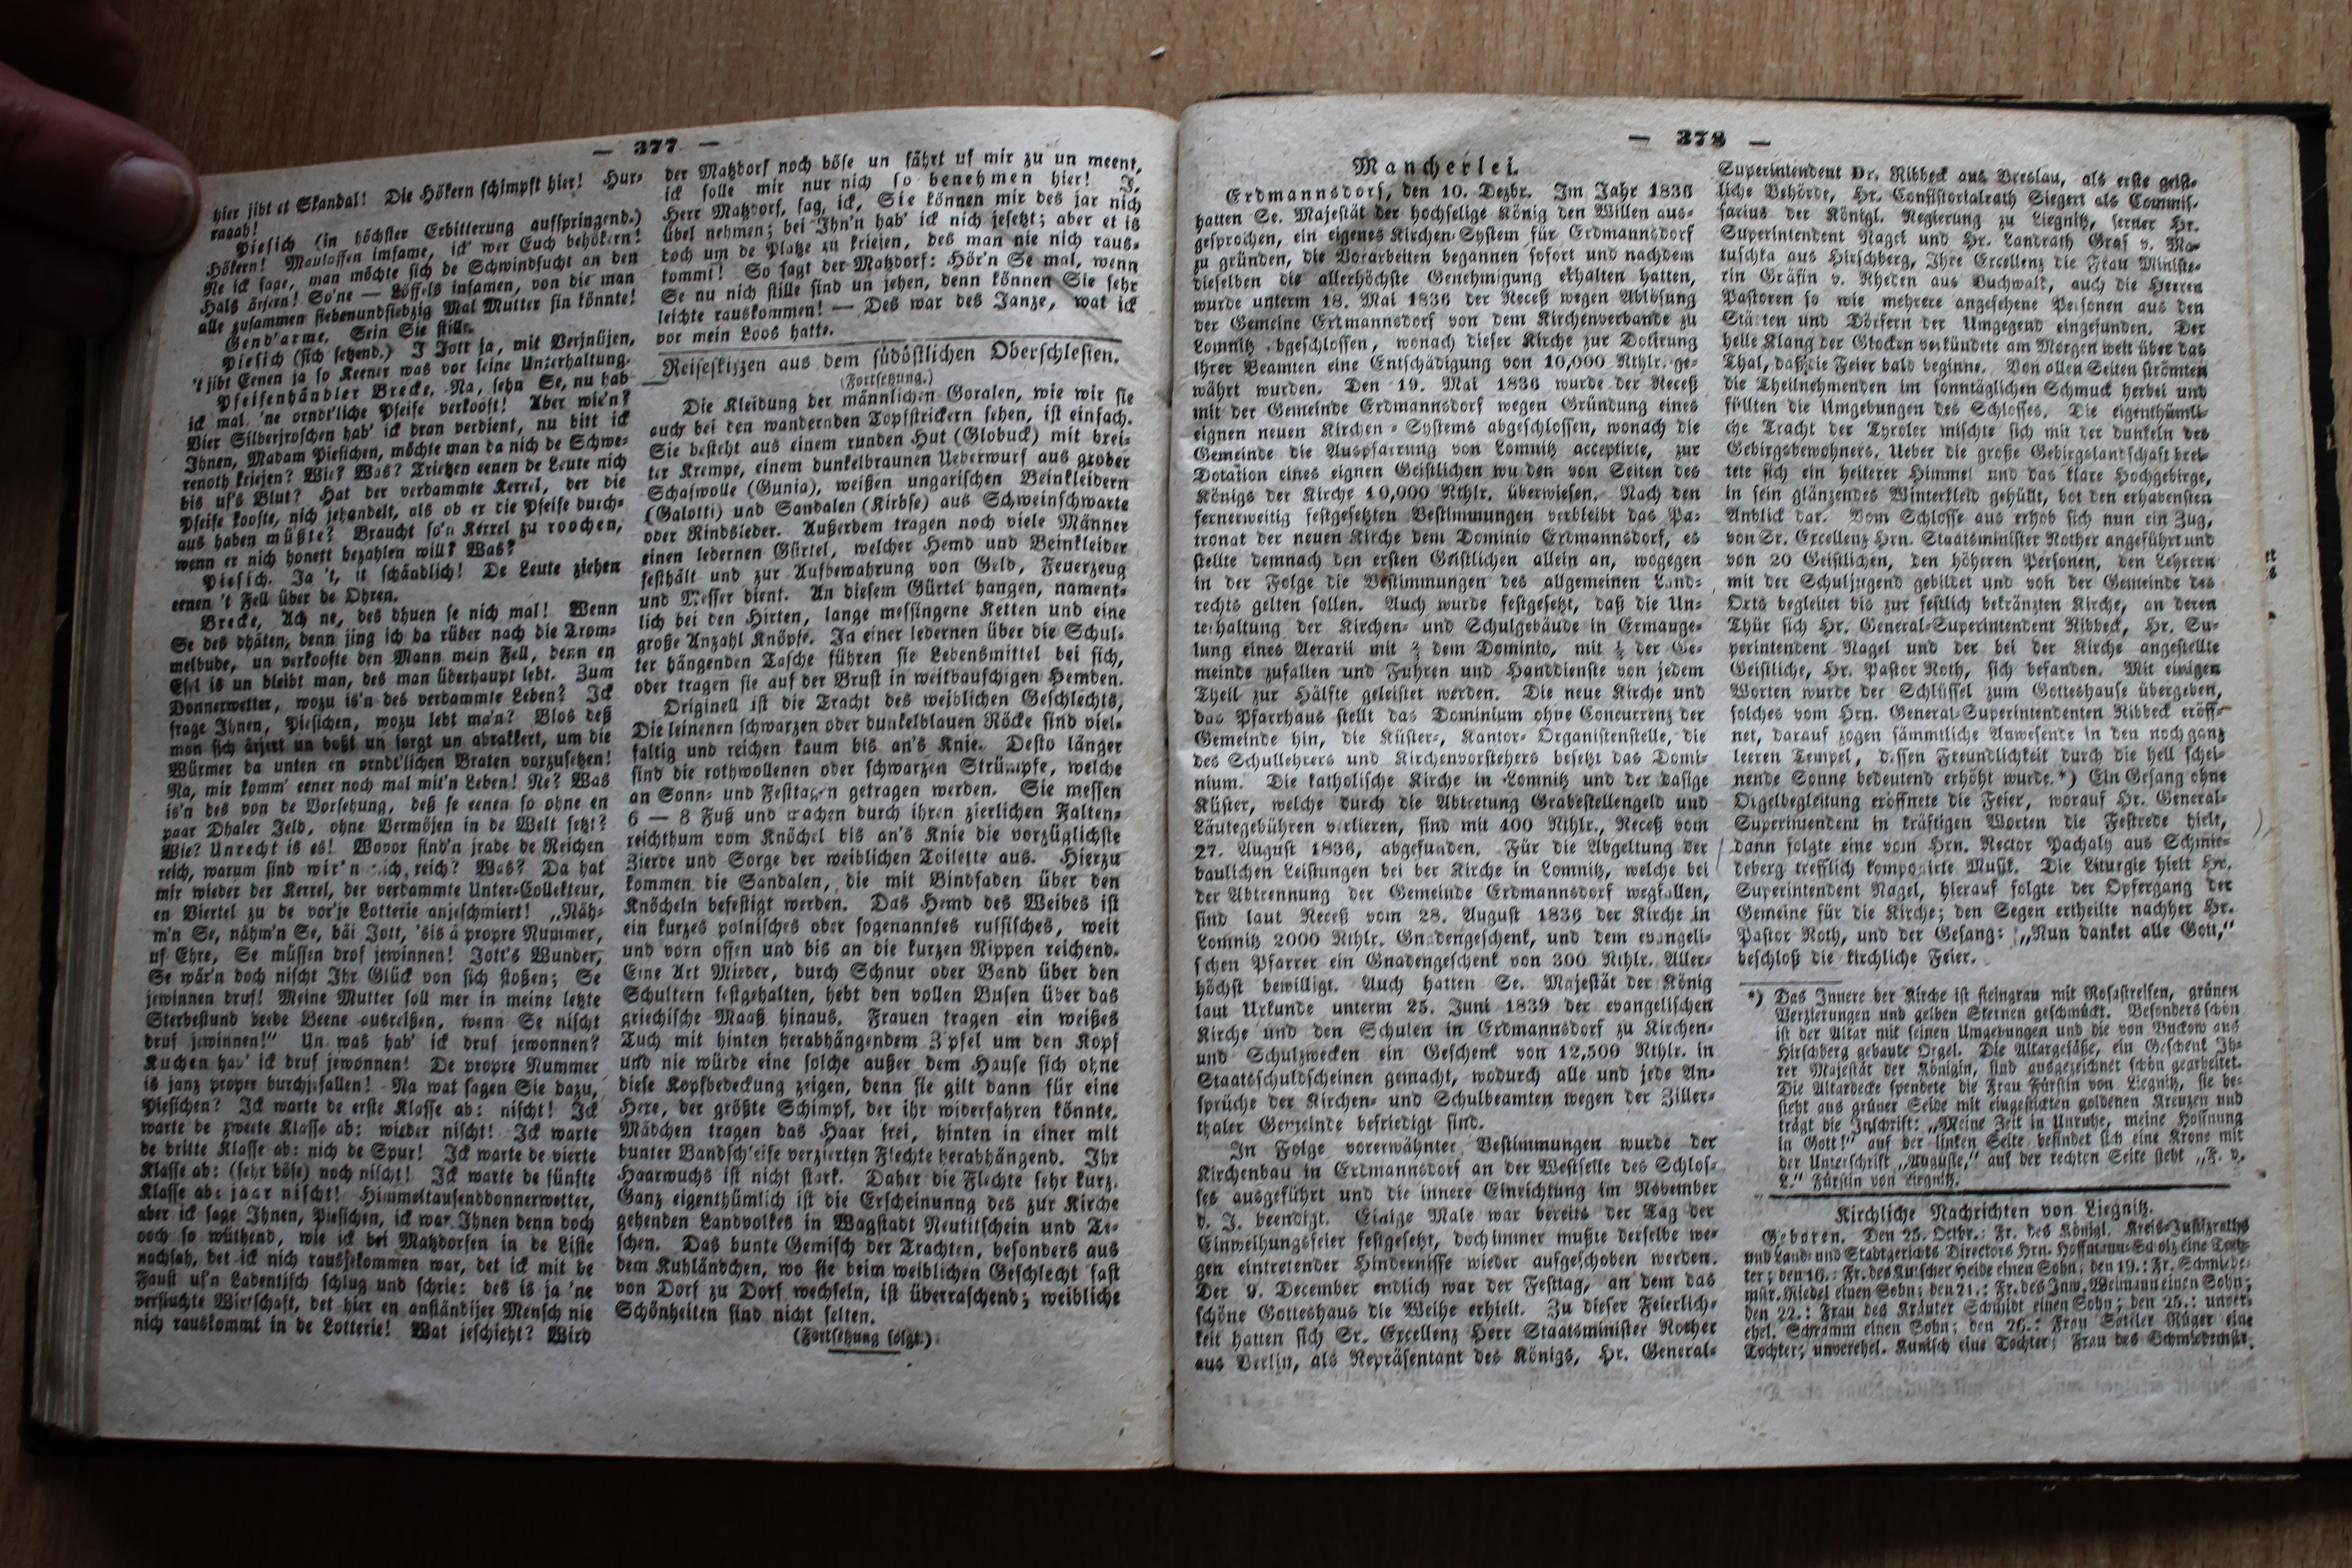 — 377 —
hier jibt et Skandal! Die Hökern schimpft hier! Hur-
raaah!
Piesich (in höchster Erbitterung aufspringend.)
Hökern! Maulaffen imfame, ick' wer Euch behökern!
Ne ick sage, man möchte sich de Schwindsucht an den
Hals ärjern! So'ne — Löffels infamen, von die man
alle zusammen siebenundsiebzig Mal Mutter sin könnte!
Gend'arme. Sein Sie stille.
Piesich (sich setzend.) J Jott ja, mit Verjnüjen,
't jibt Eenen ja so Keener was vor seine Unterhaltung.
Pfeifenhändler Brecke. Na, sehn Se, nu hab
ick mal 'ne orndt'liche Pfeife verkooft! Aber wie'n?
Vier Silberjroschen hab' ick dran verdient, nu bitt ick
Ihnen, Madam Piesichen, möchte man da nich de Schwe-
renoth kriejen? Wie? Was? Trietzen eenen de Leute nich
bis uf's Blut? Hat der verdammte Kerrel, der die
Pfeife koofte, nich jehandelt, als ob er die Pfeife durch-
aus haben müßte? Braucht so'n Kerrel zu roochen,
wenn er nich honett bezahlen will? Was?
Piesich. Ja 't, it schändlich! De Leute ziehen
eenen 't Fell über de Ohren.
Brecke, Ach ne, des dhuen se nich mal! Wenn
Se des dhäten, denn jing ich da rüber nach die Trom-
melbude, un verkoofte den Mann mein Fell, denn en
Esel is un bleibt man, des man überhaupt lebt. Zum
Donnerwetter, wozu is'n des verdammte Leben? Ick
frage Ihnen, Piesichen, wozu lebt ma'n? Blos deß
man sich ärjert un boßt un sorgt un abrakkert, um die
Würmer da unten en orndt'lichen Braten vorzusetzen!
Na, mir komm' eener noch mal mit'n Leben! Ne? Was
is'n des von de Vorsehung, deß se eenen so ohne en
paar Dhaler Jeld, ohne Vermöjen in de Welt setzt?
Wie? Unrecht is es! Wovor sind'n jrade de Reichen
reich, warum sind wir'n nich reich? Was? Da hat
mir wieder der Kerrel, der verdammte Unter-Collekteur,
en Viertel zu de vor'je Lotterie anjeschmiert! „Näh-
m'n Se, nähm'n Se, bäi Jott, 'sis á propre Nummer,
uf Ehre, Se müssen drof jewinnen! Jott's Wunder,
Se wär'n doch nischt Ihr Glück von sich stoßen; Se
jewinnen druf! Meine Mutter soll mer in meine letzte
Sterbestund beede Beene ausreißen, wenn Se nischt
druf jewinnen!" Un was hab' ick druf jewonnen?
Kuchen hab' ick druf jewonnen! De propre Nummer
is janz proper durchjefallen! Na wat sagen Sie dazu,
Piesichen? Ick warte de erste Klasse ab: nischt! Ick
warte de zweite Klasse ab: wieder nischt! Ick warte
de dritte Klasse ab: nich de Spur! Ick warte de vierte
Klasse ab: (sehr böse) noch nischt! Ick warte de fünfte
Klasse ab: jaar nischt! Himmeltausenddonnerwetter,
aber ick sage Ihnen, Piesichen, ick war Ihnen denn doch
ooch so wüthend, wie ick bei Matzdorfen in de Liste
nachsah, det ick nich rausjekommen war, det ick mit de
Faust uf'n Ladentisch schlug und schrie: des is ja 'ne
verfluchte Wirtschaft, det hier en anständijer Mensch nie
nich rauskommt in de Lotterie! Wat jeschieht? Wird
der Matzdorf noch böse un fährt uf mir zu un meent,
ick solle mir nur nich so benehmen hier! J,
Herr Matzdorf, sag, ick, Sie können mir des jar nich
übel nehmen; bei Ihn'n hab' ick nich jesetzt; aber et is
doch um de Platze zu kriejen, des man nie nich raus-
kommt! So sagt der Matzdorf: Hör'n Se mal, wenn
Se nu nich stille sind un jehen, denn können Sie sehr
leichte rauskommen! — Des war des Janze, wat ick
vor mein Loos hatte.
Reiseskizzen aus dem südöstlichen Oberschlesien.
(Fortsetzung.)
Die Kleidung der männlichen Goralen, wie wir sie
auch bei den wandernden Topfstrickern sehen, ist einfach.
Sie besteht aus einem runden Hut (Globuck) mit brei-
ter Krempe, einem dunkelbraunen Ueberwurf aus grober
Schafwolle (Gunia), weißen ungarischen Beinkleidern
(Galotti) und Sandalen (Kirbse) aus Schweinschwarte
oder Rindsleder. Außerdem tragen noch viele Männer
einen ledernen Gürtel, welcher Hemd und Beinkleider
festhält und zur Aufbewahrung von Geld, Feuerzeug
und Messer dient. An diesem Gürtel hangen, nament-
lich bei den Hirten, lange messingene Ketten und eine
große Anzahl Knöpfe. In einer ledernen über die Schul-
ter hängenden Tasche führen sie Lebensmittel bei sich,
oder tragen sie auf der Brust in weitbauschigen Hemden.
Originell ist die Tracht des weiblichen Geschlechts,
Die leinenen schwarzen oder dunkelblauen Röcke sind viel-
faltig und reichen kaum bis an's Knie. Desto länger
sind die rothwollenen oder schwarzen Strümpfe, welche
an Sonn- und Festtagen getragen werden. Sie messen
6 — 8 Fuß und machen durch ihren zierlichen Falten-
reichthum vom Knöchel bis an's Knie die vorzüglichste
Zierde und Sorge der weiblichen Toilette aus. Hierzu
kommen die Sandalen, die mit Bindfaden über den
Knöcheln befestigt werden. Das Hemd des Weibes ist
ein kurzes polnisches oder sogenanntes russisches, weit
und vorn offen und bis an die kurzen Rippen reichend.
Eine Art Mieder, durch Schnur oder Band über den
Schultern festgehalten, hebt den vollen Busen über das
griechische Maaß hinaus. Frauen tragen ein weißes
Tuch mit hinten herabhängendem Zipfel um den Kopf
und nie würde eine solche außer dem Hause sich ohne
diese Kopfbedeckung zeigen, denn sie gilt dann für eine
Hexe, der größte Schimpf, der ihr widerfahren könnte.
Mädchen tragen das Haar frei, hinten in einer mit
bunter Bandschleife verzierten Flechte herabhängend. Ihr
Haarwuchs ist nicht stark. Daher die Flechte sehr kurz.
Ganz eigenthümlich ist die Erscheinung des zur Kirche
gehenden Landvolkes in Wagstadt Neutitschein und Te-
schen. Das bunte Gemisch der Trachten, besonders aus
dem Kuhländchen, wo sie beim weiblichen Geschlecht fast
von Dorf zu Dorf wechseln, ist überraschend; weibliche
Schönheiten sind nicht selten.
(Fortsetzung folgt.)
— 378 —
Mancherlei.
Erdmannsdorf, den 10. Dezbr. Im Jahr 1836
hatten Se. Majestät der hochselige König den Willen aus-
gesprochen, ein eigenes Kirchen-System für Erdmannsdorf
zu gründen, die Vorarbeiten begannen sofort und nachdem
dieselben die allerhöchste Genehmigung erhalten hatten,
wurde unterm 18. Mai 1836 der Receß wegen Ablösung
der Gemeine Erdmannsdorf von dem Kirchenverbande zu
Lomnitz abgeschlossen, wonach dieser Kirche zur Dotirung
ihrer Beamten eine Entschädigung von 10,000 Rthlr. ge-
währt wurden. Den 19. Mai 1836 wurde der Receß
mit der Gemeinde Erdmannsdorf wegen Gründung eines
eignen neuen Kirchen-Systems abgeschlossen, wonach die
Gemeinde die Auspfarrung von Lomnitz acceptirte, zur
Dotation eines eignen Geistlichen wurden von Seiten des
Königs der Kirche 10,000 Rthlr. überwiesen. Nach den
fernerweitig festgesetzten Bestimmungen verbleibt das Pa-
tronat der neuen Kirche dem Dominio Erdmannsdorf, es
stellte demnach den ersten Geistlichen allein an, wogegen
in der Folge die Bestimmungen des allgemeinen Land-
rechts gelten sollen. Auch wurde festgesetzt, daß die Un-
terhaltung der Kirchen- und Schulgebäude in Ermange-
lung eines Aerarii mit ⅔ dem Dominio, mit ⅓ der Ge-
meinde zufallen und Fuhren und Handdienste von jedem
Theil zur Hälfte geleistet werden. Die neue Kirche und
das Pfarrhaus stellt das Dominium ohne Concurrenz der
Gemeinde hin, die Küster-, Kantor- Organistenstelle, die
des Schullehrers und Kirchenvorstehers besetzt das Domi-
nium. Die katholische Kirche in Lomnitz und der dasige
Küster, welche durch die Abtretung Grabestellengeld und
Läutegebühren verlieren, sind mit 400 Rthlr., Receß vom
27. August 1836, abgefunden. Für die Abgeltung der
baulichen Leistungen bei der Kirche in Lomnitz, welche bei
der Abtrennung der Gemeinde Erdmannsdorf wegfallen,
sind laut Receß vom 28. August 1836 der Kirche in
Lomnitz 2000 Rthlr. Gnadengeschenk, und dem evangeli-
schen Pfarrer ein Gnadengeschenk von 300 Rthlr. Aller-
höchst bewilligt. Auch hatten Se. Majestät der König
laut Urkunde unterm 25. Juni 1839 der evangelischen
Kirche und den Schulen in Erdmannsdorf zu Kirchen-
und Schulzwecken ein Geschenk von 12,500 Rthlr. in
Staatsschuldscheinen gemacht, wodurch alle und jede An-
sprüche der Kirchen- und Schulbeamten wegen der Ziller-
thaler Gemeinde befriedigt sind.
In Folge vorerwähnter Bestimmungen wurde der
Kirchenbau in Erdmannsdorf an der Westseite des Schlos-
ses ausgeführt und die innere Einrichtung im November
d. J. beendigt. Einige Male war bereits der Tag der
Einweihungsfeier festgesetzt, doch immer mußte derselbe we-
gen eintretender Hindernisse wieder aufgeschoben werden.
Der 9. December endlich war der Festtag, an dem das
schöne Gotteshaus die Weihe erhielt. Zu dieser Feierlich-
keit hatten sich Sr. Excellenz Herr Staatsminister Rother
aus Berlin, als Repräsentant des Königs, Hr. General-
Superintendent Dr. Ribbeck aus Breslau, als erste geist-
liche Behörde, Hr. Consistorialrath Siegert als Commis-
sarius der Königl. Regierung zu Liegnitz, ferner Hr.
Superintendent Nagel und Hr. Landrath Graf v. Ma-
tuschka aus Hirschberg, Ihre Excellenz die Frau Ministe-
rin Gräfin v. Rheden aus Buchwald, auch die Herren
Pastoren so wie mehrere angesehene Personen aus den
Städten und Dörfern der Umgegend eingefunden. Der
helle Klang der Glocken verkündete am Morgen weit über das
Thal, daß die Feier bald beginne. Von allen Seiten strömten
die Theilnehmenden im sonntäglichen Schmuck herbei und
füllten die Umgebungen des Schlosses. Die eigenthümli-
che Tracht der Tyroler mischte sich mit der dunkeln des
Gebirgsbewohners. Ueber die große Gebirgslandschaft brei-
tete sich ein heiterer Himmel und das klare Hochgebirge,
in sein glänzendes Winterkleid gehüllt, bot den erhabensten
Anblick dar. Vom Schlosse aus erhob sich nun ein Zug,
von Sr. Excellenz Hrn. Staatsminister Rother angeführt und
von 20 Geistlichen, den höheren Personen, den Lehrern
mit der Schuljugend gebildet und von der Gemeinde des
Orts begleitet bis zur festlich bekränzten Kirche, an deren
Thür sich Hr. General-Superintendent Ribbeck, Hr. Su-
perintendent Nagel und der bei der Kirche angestellte
Geistliche, Hr. Pastor Roth, sich befanden. Mit einigen
Worten wurde der Schlüssel zum Gotteshause übergeben,
solches vom Hrn. General-Superintendenten Ribbeck eröff-
net, darauf zogen sämmtliche Anwesende in den noch ganz
leeren Tempel, dessen Freundlichkeit durch die hell schei-
nende Sonne bedeutend erhöht wurde.*) Ein Gesang ohne
Orgelbegleitung eröffnete die Feier, worauf Hr. General-
Superintendent in kräftigen Worten die Festrede hielt,
dann folgte eine vom Hrn. Rector Pachaly aus Schmie-
deberg trefflich komponirte Musik. Die Liturgie hielt Hr.
Superintendent Nagel, hierauf folgte der Opfergang der
Gemeine für die Kirche; den Segen ertheilte nachher Hr.
Pastor Roth, und der Gesang: „Nun danket alle Gott,"
beschloß die kirchliche Feier.
*) Das Innere der Kirche ist steingrau mit Rosastreifen, grünen
Verzierungen und gelben Sternen geschmückt. Besonders schön
ist der Altar mit seinen Umgebungen und die von Buckow aus
Hirschberg gebaute Orgel. Die Altargefäße, ein Geschenk Ih-
rer Majestät der Königin, sind ausgezeichnet schön gearbeitet.
Die Altardecke spendete die Frau Fürstin von Liegnitz, sie be-
steht aus grüner Seide mit eingestickten goldenen Kreuzen und
trägt die Inschrift: „Meine Zeit in Unruhe, meine Hoffnung
in Gott!" auf der linken Seite befindet sich eine Krone mit
der Unterschrift „Auguste," auf der rechten Seite steht „F. v.
L." Fürstin von Liegnitz.
Kirchliche Nachrichten von Liegnitz.
Geboren. Den 25. Octbr.: Fr. des Königl. Kreis-Justizraths
und Land- und Stadtgerichts Directors Hrn. Hoffmann-Scholz eine Toch-
ter; den 16.: Fr. des Kutscher Heide einen Sohn; den 19.: Fr. Schmiede-
mstr. Riedel einen Sohn; den 21.: Fr. des Inw. Weimann einen Sohn;
den 22.: Frau des Kräuter Schmidt einen Sohn; den 25.: unver-
ehel. Schramm einen Sohn; den 26.: Frau Sattler Rüger eine
Tochter; unverehel. Kunisch eine Tochter; Frau des Schmiedemstr.